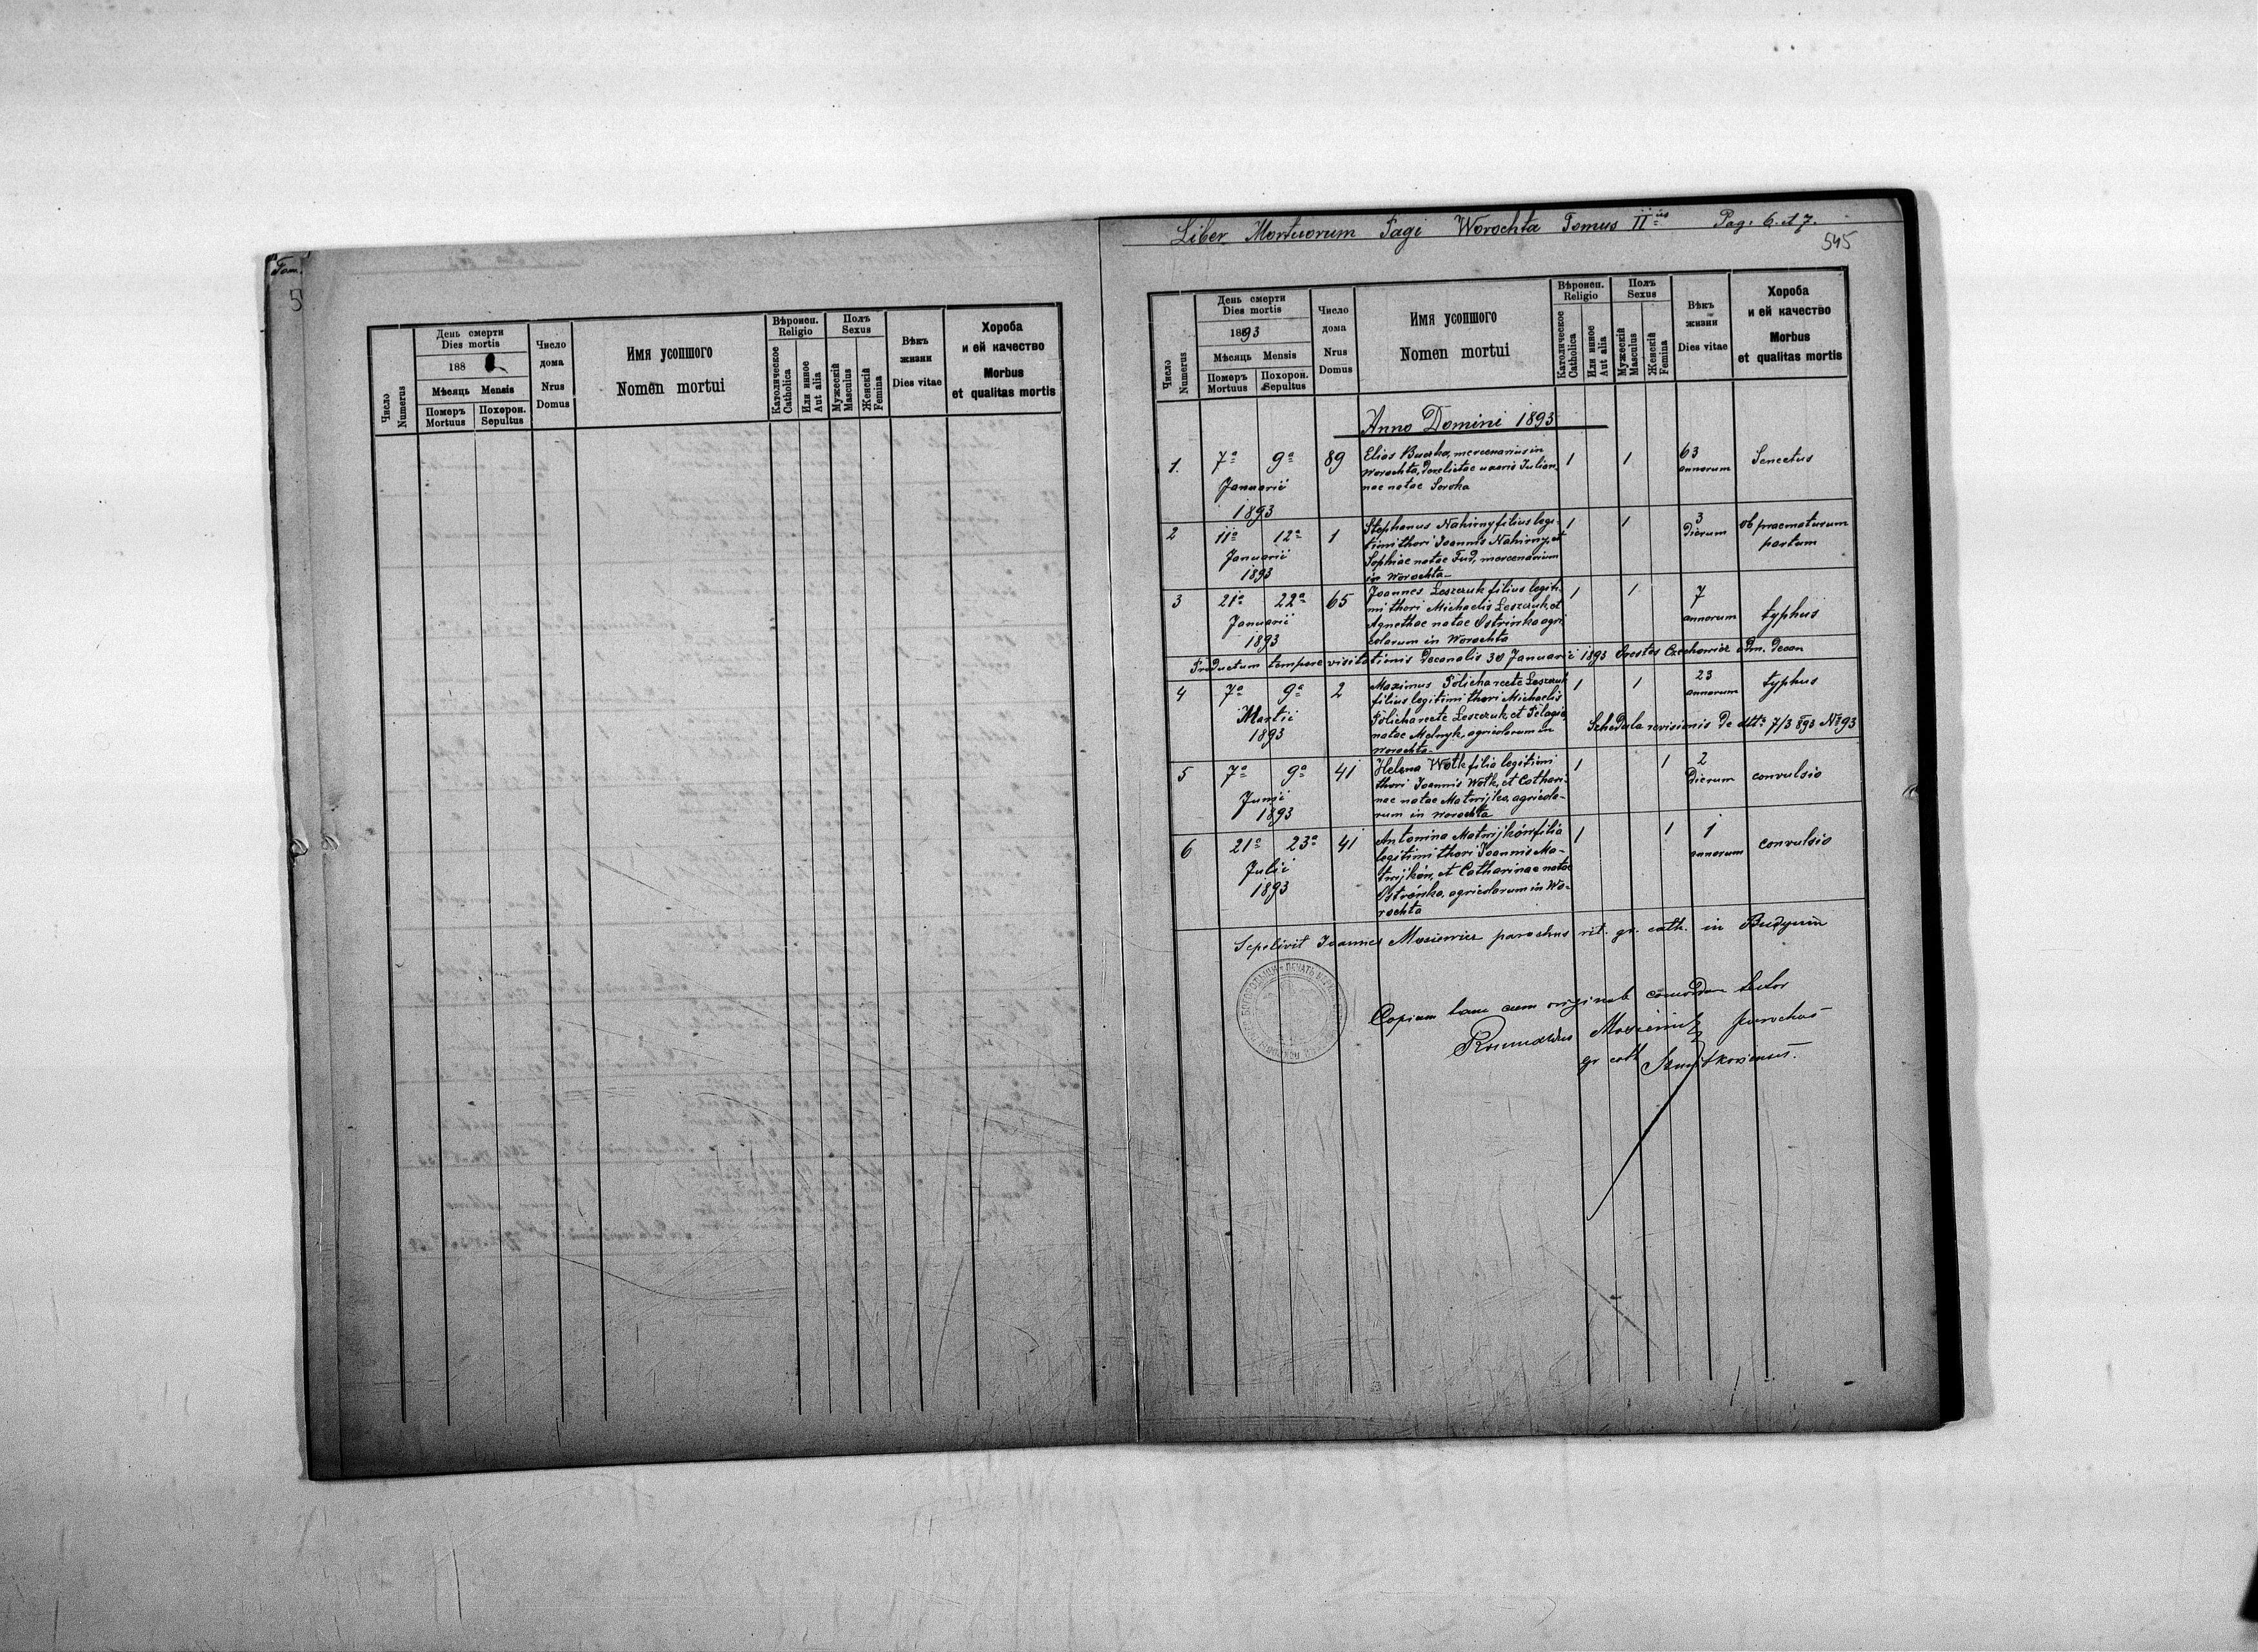 Tom.
5
Число
Numerus
День смерти
Dies mortis
188
Мѣсяць Mensis
Померъ
Mortuus
Похорон.
Sepultus
Число
дома
Nrus
Domus
Имя усопшого
Nomen mortui
Вѣроисп.
Religio
Католическое
Catholica
Или инное
Aut alia
Полъ
Sexus
Мужескій
Masculus
Женскій
Femina
Вѣкъ
жизни
Dies vitae
Хороба
и ей качество
Morbus
et qualitas mortis
Liber Mortuorum Pagi Worochta Tomus II us Pag: 6. et 7.
545
Число
Numerus
День смерти
Dies mortis
1893
Мѣсяць Mensis
Померъ
Mortuus
Похорон.
Sepultus
Число
дома
Nrus
Domus
Имя усопшого
Nomen mortui
Вѣроисп.
Religio
Католическое
Catholica
Или инное
Aut alia
Полъ
Sexus
Мужескій
Masculus
Женскій
Femina
Вѣкъ
жизни
Dies vitae
Хороба
и ей качество
Morbus
et qualitas mortis
Anno Domini 1893
1. 7a 9a Januarii 1893 89
Elias mercenarius in
Worochta, derelictae uxoris Julian
nae natae Soroka
1 1 63 annorum Senectus
2 11a 12a Januarii 1893 1
Stephanus Nahirny filius legi-
timi thori Joannis Nahirny, et
Sophiae natae Fud, mercenarium
in Worochta
1 1 3 dierum ob praematurum partum
3 21a 22a Januarii 1893 65
Joannes Leszczuk filius legiti-
mi thori Michaelis Leszczuk, et
Agnethae natae Ostrinka agri
colarum in Worochta
1 1 7 annorum typhus
Productum tempore visitationis decanalis 30 Januarii 1893 Orestes Czechowicz adm. decan
4 7a 9a Martii 1893 2
Maximus Policha recte Leszczuk
filius legitimi thori Michaelis
Policha recte Leszczuk, et Pelagia
natae Melnyk, agricolarum in
Worochta
1 1 23 annorum typhus
Schedula revisionis de dtto 7/3 893 No 93
5 7a 9a Junii 1893 41
Helena Wolk filia legitimi
thori Joannis Wolk, et Cathari-
nae natae Matwijko, agricola-
rum in Worochta
1 1 2 dierum convulsio
6 21a 23a Julii 1893 41
Antonina Matwijków filia
legitimi thori Joannis Ma-
twijków, et Catharinae natae
agricolarum in Wo-
rochta
1 1 1 annorum convulsio
Sepelivit Joannes Mosiewicz parochus rit. gr. cath. in Budynin
cum originali
parochus
gr cath